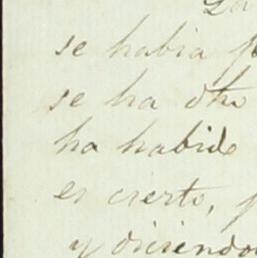 La
se habia p
se ha dho
ha habido
es cierto, p
y diciendo